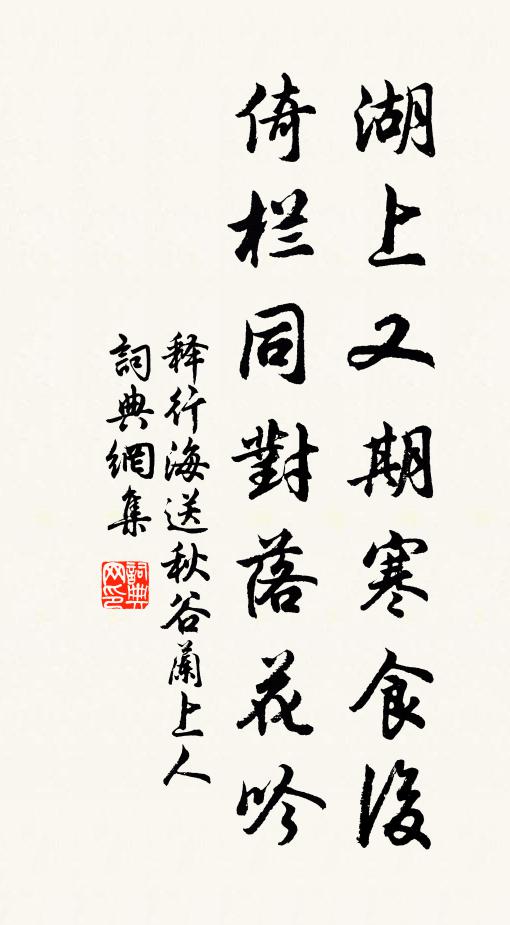 湖上又期寒食後
倚栏同對落花吟
释行海送秋谷蘭上人
詞典網集
詞典网印